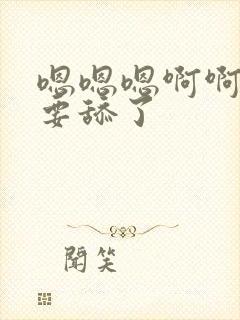 嗯嗯嗯啊啊
要舔了
闻笑